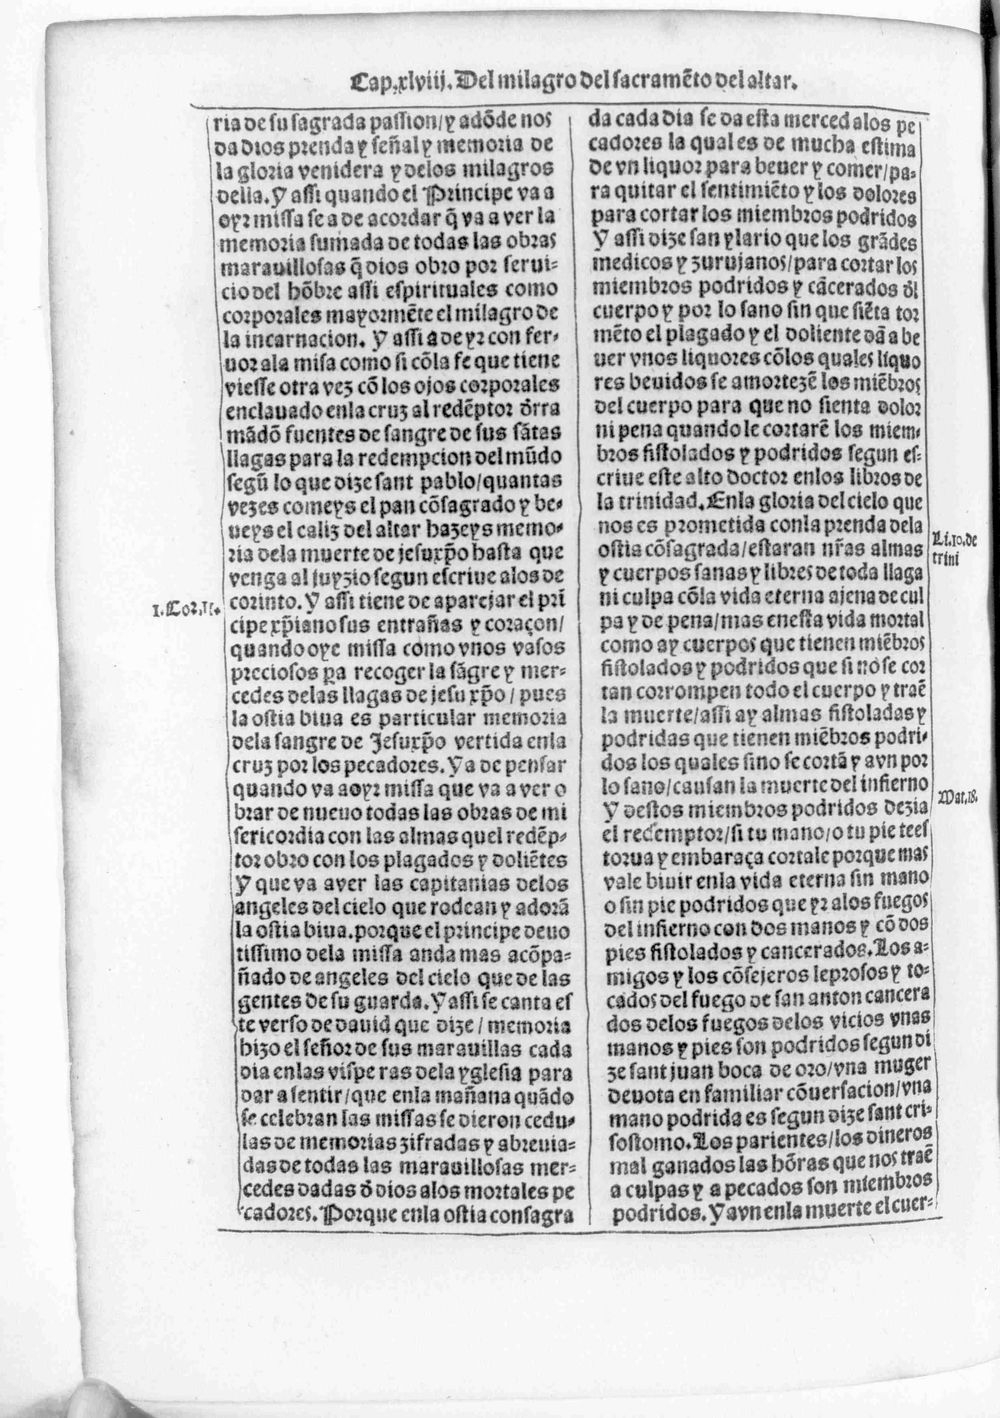 Cap.xlviij. Del milagro del sacramẽto del altar.
ria de su sagrada passion/y adõde nos
da dios prenda y señal y memoria de
la gloria venidera y delos milagros
della. Y assi quando el Principe va a
oyr missa se a de acordar q̃ va a ver la
memoria sumada de todas las obras
marauillosas q̃ dios obro por serui-
cio del hõbre assi espirituales como
corporales mayormẽte el milagro de
la incarnacion. Y assi a de yr con fer-
uor ala misa como si cõla fe que tiene
viesse otra vez cõ los ojos corporales
enclauado enla cruz al redẽptor d̃rra
mãdõ fuentes de sangre de sus sãtas
llagas para la redempcion del mũdo
segũ lo que dize sant pablo/quantas
vezes comeys el pan cõsagrado y be-
ueys el caliz del altar hazeys memo-
ria dela muerte de jesuxp̃o hasta que
venga al juyzio segun escriue alos de
1. Cor. 11.
corinto. Y assi tiene de aparejar el prĩ
cipe xp̃iano sus entrañas y coraçon/
quando oye missa como vnos vasos
preciosos p̱a recoger la sãgre y mer-
cedes delas llagas de jesu xp̃o/pues
la ostia biua es particular memoria
dela sangre de Jesuxp̃o vertida enla
cruz por los pecadores. Y a de pensar
quando va a oyr missa que va a ver o
brar de nueuo todas las obras de mi
sericordia con las almas quel redẽp-
tor obro con los plagados y doliẽtes
Y que va a ver las capitanias delos
angeles del cielo que rodean y adorã
la ostia biua. porque el principe deuo
tissimo dela missa anda mas acõpa-
ñado de angeles del cielo que de las
gentes de su guarda. Y assi se canta es
te verso de dauid que dize/memoria
hizo el señor de sus marauillas cada
dia enlas visperas dela yglesia para
dar a sentir/que enla mañana quãdo
se celebran las missas se dieron cedu-
las de memorias zifradas y abreuia-
das de todas las marauillosas mer-
cedes dadas d̃ dios alos mortales pe
cadores. Porque enla ostia consagra
da cada dia se da esta merced alos pe
cadores la qual es de mucha estima
de vn liquor para beuer y comer/pa-
ra quitar el sentimiẽto y los dolores
para cortar los miembros podridos
Y assi dize san ylario que los grãdes
medicos y zurujanos/para cortar los
miembros podridos y cãcerados d̃l
cuerpo y por lo sano sin que siẽta tor
mẽto el plagado y el doliente dã a be
uer vnos liquores cõlos quales liquo
res beuidos se amortezẽ los miẽbros
del cuerpo para que no sienta dolor
ni pena quando le cortarẽ los miem-
bros fistolados y podridos segun es-
criue este alto doctor enlos libros de
la trinidad. Enla gloria del cielo que
nos es prometida conla prenda dela
ostia cõsagrada/estaran nr̃as almas
Li. 10. de
trini
y cuerpos sanas y libres de toda llaga
ni culpa cõla vida eterna ajena de cul
pa y de pena/mas enesta vida mortal
como ay cuerpos que tienen miẽbros
fistolados y podridos que si no se cor
tan corrompen todo el cuerpo y traẽ
la muerte/assi ay almas fistoladas y
podridas que tienen miẽbros podri-
dos los quales sino se cortã y avn por
lo sano/causan la muerte del infierno
Mat. 18.
Y destos miembros podridos dezia
el redemptor/si tu mano/o tu pie tees
torua y embaraça cortale porque mas
vale biuir enla vida eterna sin mano
o sin pie podridos que yr alos fuegos
del infierno con dos manos y cõ dos
pies fistolados y cancerados. Los a-
migos y los cõsejeros leprosos y to-
cados del fuego de san anton cancera
dos delos fuegos delos vicios vnas
manos y pies son podridos segun di
ze sant juan boca de oro/vna muger
deuota en familiar cõuersacion/vna
mano podrida es segun dize sant cri-
sostomo. Los parientes/los dineros
mal ganados las hõras que nos traẽ
a culpas y a pecados son miembros
podridos. Y avn enla muerte el cuer-